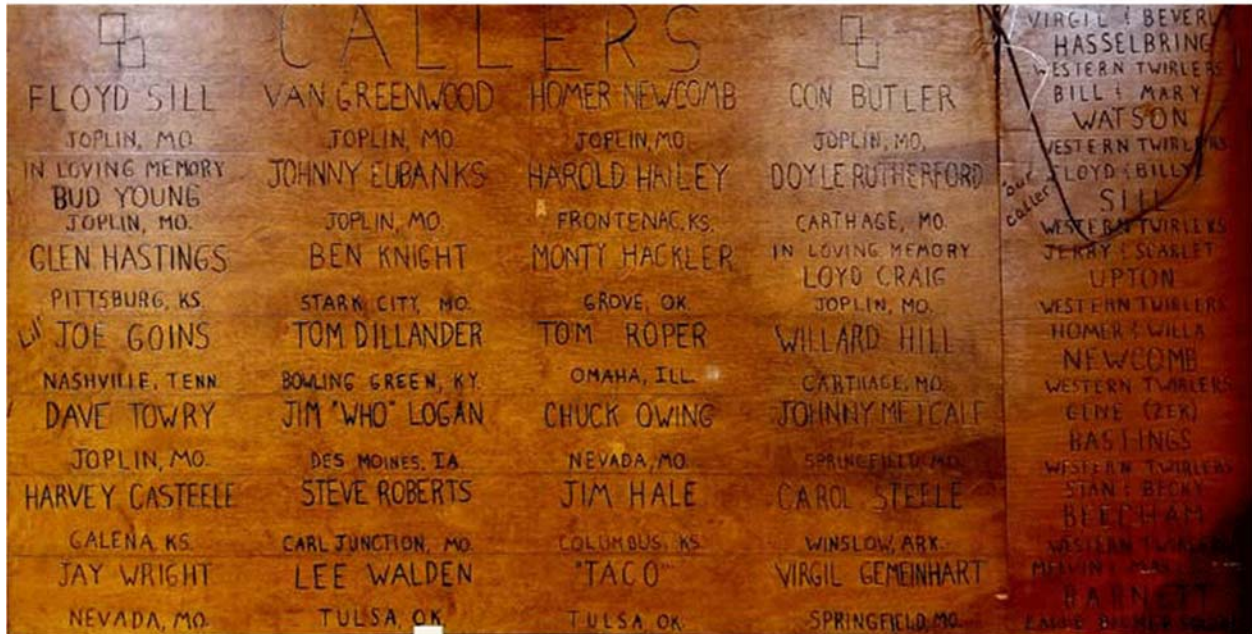 CALLERS
FLOYD SILL
JOPLIN, MO.
IN LOVING MEMORY
BUD YOUNG
JOPLIN, MO.
GLEN HASTINGS
PITTSBURG, KS.
Lil' JOE GOINS
NASHVILLE, TENN.
DAVE TOWRY
JOPLIN, MO.
HARVEY CASTEELE
GALENA, KS.
JAY WRIGHT
NEVADA, MO.
VAN GREENWOOD
JOPLIN, MO.
JOHNNY EUBANKS
JOPLIN, MO.
BEN KNIGHT
STARK CITY, MO.
TOM DILLANDER
BOWLING GREEN, KY.
JIM "WHO" LOGAN
DES MOINES, IA.
STEVE ROBERTS
CARL JUNCTION, MO.
LEE WALDEN
TULSA, OK
HOMER NEWCOMB
JOPLIN, MO.
HAROLD HAILEY
FRONTENAC, KS.
MONTY HACKLER
GROVE, OK.
TOM ROPER
OMAHA, ILL.
CHUCK OWING
NEVADA, MO.
JIM HALE
COLUMBUS, KS.
"TACO"
TULSA, OK.
CON BUTLER
JOPLIN, MO.
DOYLE RUTHERFORD
CARTHAGE, MO.
IN LOVING MEMORY
LOYD CRAIG
JOPLIN, MO.
WILLARD HILL
CARTHAGE, MO.
JOHNNY METCALF
SPRINGFIELD, MO.
CAROL STEELE
WINSLOW, ARK.
VIRGIL GEMEINHART
SPRINGFIELD, MO.
VIRGIL & BEVERLY
HASSELBRING
WESTERN TWIRLERS
BILL & MARY
WATSON
WESTERN TWIRLERS
FLOYD & BILLYE
SILL
"our caller"
WESTERN TWIRLERS
JERRY & SCARLET
UPTON
WESTERN TWIRLERS
HOMER & WILLA
NEWCOMB
WESTERN TWIRLERS
GENE (ZEK)
BASTINGS
WESTERN TWIRLERS
STAN & BECKY
BEECHAM
WESTERN TWIRLERS
MELVIN &
BARNETT